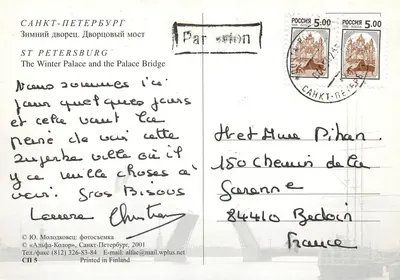 САНКТ-ПЕТЕРБУРГ
Зимний дворец. Дворцовый мост
ST PETERSBURG
The Winter Palace and the Palace Bridge
Par avion
РОССИЯ 5.00
РОССИЯ 5.00
САНКТ-ПЕТЕРБ
Nous sommes ici
pour quelques jours
et cela vaut la
peine de voir cette
superbe ville où il
y a mille choses à
voir. Gros Bisous
Christian
M et Mme Pihan
150 Chemin de la
Garenne
84410 Bedoin
France
© Ю. Молодковец: фотосъемка
© «Альфа-Колор», Санкт-Петербург, 2001
Тел/факс (812) 326-83-84 E-mail: alfac@mail.wplus.net
СП 5 Printed in Finland